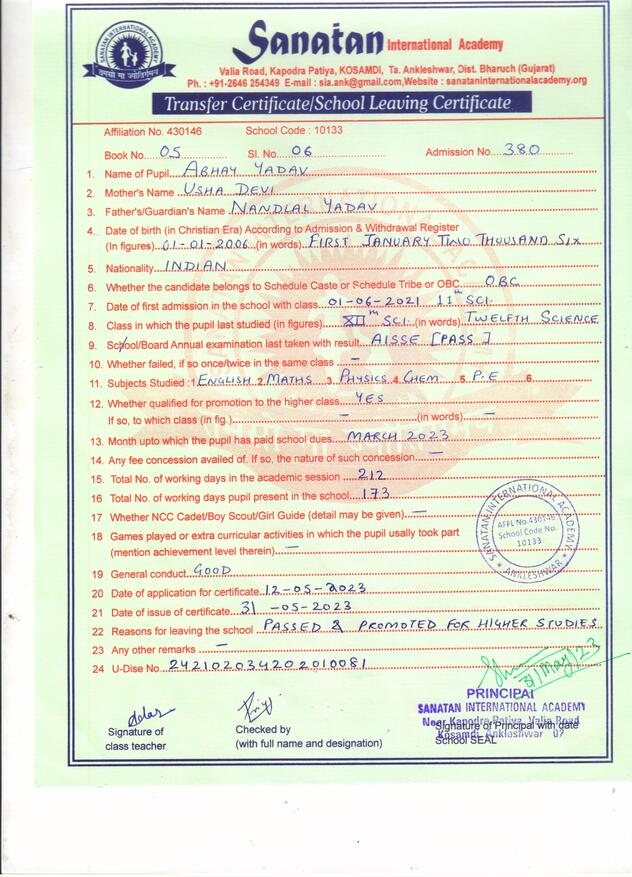 SANATAN INTERNATIONAL ACADEMY
तमसो मा ज्योतिर्गमय
Sanatan International Academy
Valia Road, Kapodra Patiya, KOSAMDI, Ta. Ankleshwar, Dist. Bharuch (Gujarat)
Ph. : +91-2646 254349 E-mail : sia.ank@gmail.com,Website : sanataninternationalacademy.org
Transfer Certificate/School Leaving Certificate
Affiliation No. 430146 School Code : 10133
Book No. 05 Sl. No. 06 Admission No. 380
1. Name of Pupil ABHAY YADAV
2. Mother's Name USHA DEVI
3. Father's/Guardian's Name NANDLAL YADAV
4. Date of birth (in Christian Era) According to Admission & Withdrawal Register
(In figures) 01-01-2006 (in words) FIRST JANUARY TWO THOUSAND SIX
5. Nationality INDIAN
6. Whether the candidate belongs to Schedule Caste or Schedule Tribe or OBC OBC
7. Date of first admission in the school with class 01-06-2021 11th SCI.
8. Class in which the pupil last studied (in figures) XIIth SCI. (in words) TWELFTH SCIENCE
9. School/Board Annual examination last taken with result AISSE [PASS]
10. Whether failed, if so once/twice in the same class —
11. Subjects Studied :1 ENGLISH 2 MATHS 3. PHYSICS 4 CHEM 5. P.E 6.
12. Whether qualified for promotion to the higher class YES
If so, to which class (in fig.) — (in words) —
13. Month upto which the pupil has paid school dues MARCH 2023
14. Any fee concession availed of. If so, the nature of such concession —
15. Total No. of working days in the academic session 212
16 Total No. of working days pupil present in the school 173
17 Whether NCC Cadet/Boy Scout/Girl Guide (detail may be given) —
18 Games played or extra curricular activities in which the pupil usally took part
(mention achievement level therein) —
SANATAN INTERNATIONAL ACADEMY
AFFL No.430146
School Code No.
10133
ANKLESHWAR
19 General conduct GOOD
20 Date of application for certificate 12-05-2023
21 Date of issue of certificate 31-05-2023
22 Reasons for leaving the school PASSED & PROMOTED FOR HIGHER STUDIES
23 Any other remarks —
24 U-Dise No. 24210203420201​0081
31/May/23
PRINCIPAL
SANATAN INTERNATIONAL ACADEMY
Near Kapodra Patiya, Valia Road
Kosamdi, Ankleshwar 02
Signature of Principal with date
School SEAL
Signature of
class teacher
Checked by
(with full name and designation)